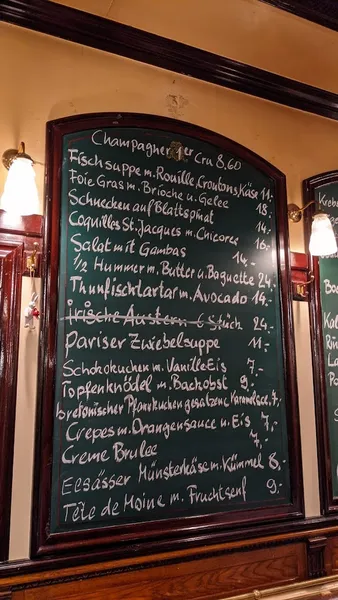 Champagner 1er Cru 8,60
Fischsuppe m. Rouille, Croutons, Käse 11.-
Foie Gras m. Brioche u. Gelee 18.-
Schnecken auf Blattspinat 14.-
Coquilles St. Jacques m. Chicoree 16.-
Salat mit Gambas 14.-
1/2 Hummer m. Butter u. Baguette 24.-
Thunfischtartar m. Avocado 14.-
irische Austern 6 Stück 24.-
Pariser Zwiebelsuppe 11.-
Schokokuchen m. Vanille Eis 7.-
Topfenknödel m. Backobst 9.-
bretonischer Pfannkuchen gesalzene Karamelsce. 7,-
Crepes m. Orangensauce u. Eis 7.-
Creme Brulee 7.-
Elsässer Münsterkäse m. Kümmel 8.-
Tete de Moine m. Fruchtsenf 9.-